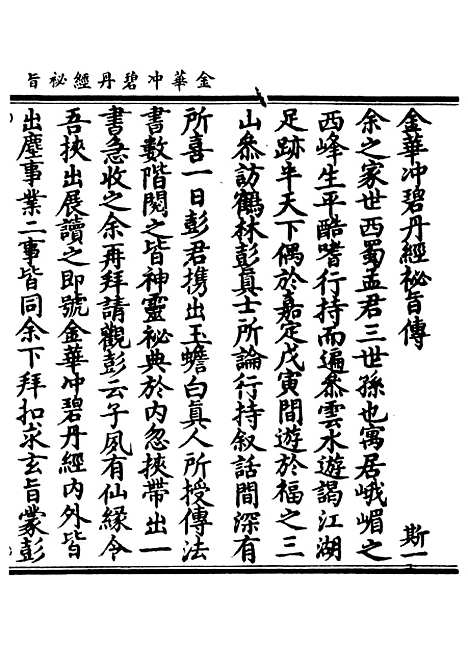 金華冲碧丹經祕旨
金華冲碧丹經祕旨傳
斯一
余之家世西蜀孟君三世孫也寓居峨嵋之
西峰生平酷嗜行持而遍叅雲水遊謁江湖
足跡半天下偶於嘉定戊寅間遊於福之三
山叅訪鶴林彭真士所論行持叙話間深有
所喜一日彭君携出玉蟾白真人所授傳法
書數階閱之皆神靈祕典於内忽挾帶出一
書急收之余再拜請觀彭云子夙有仙緣令
吾挾出展讀之即號金華冲碧丹經内外皆
出塵事業二事皆同余下拜扣求玄旨蒙彭